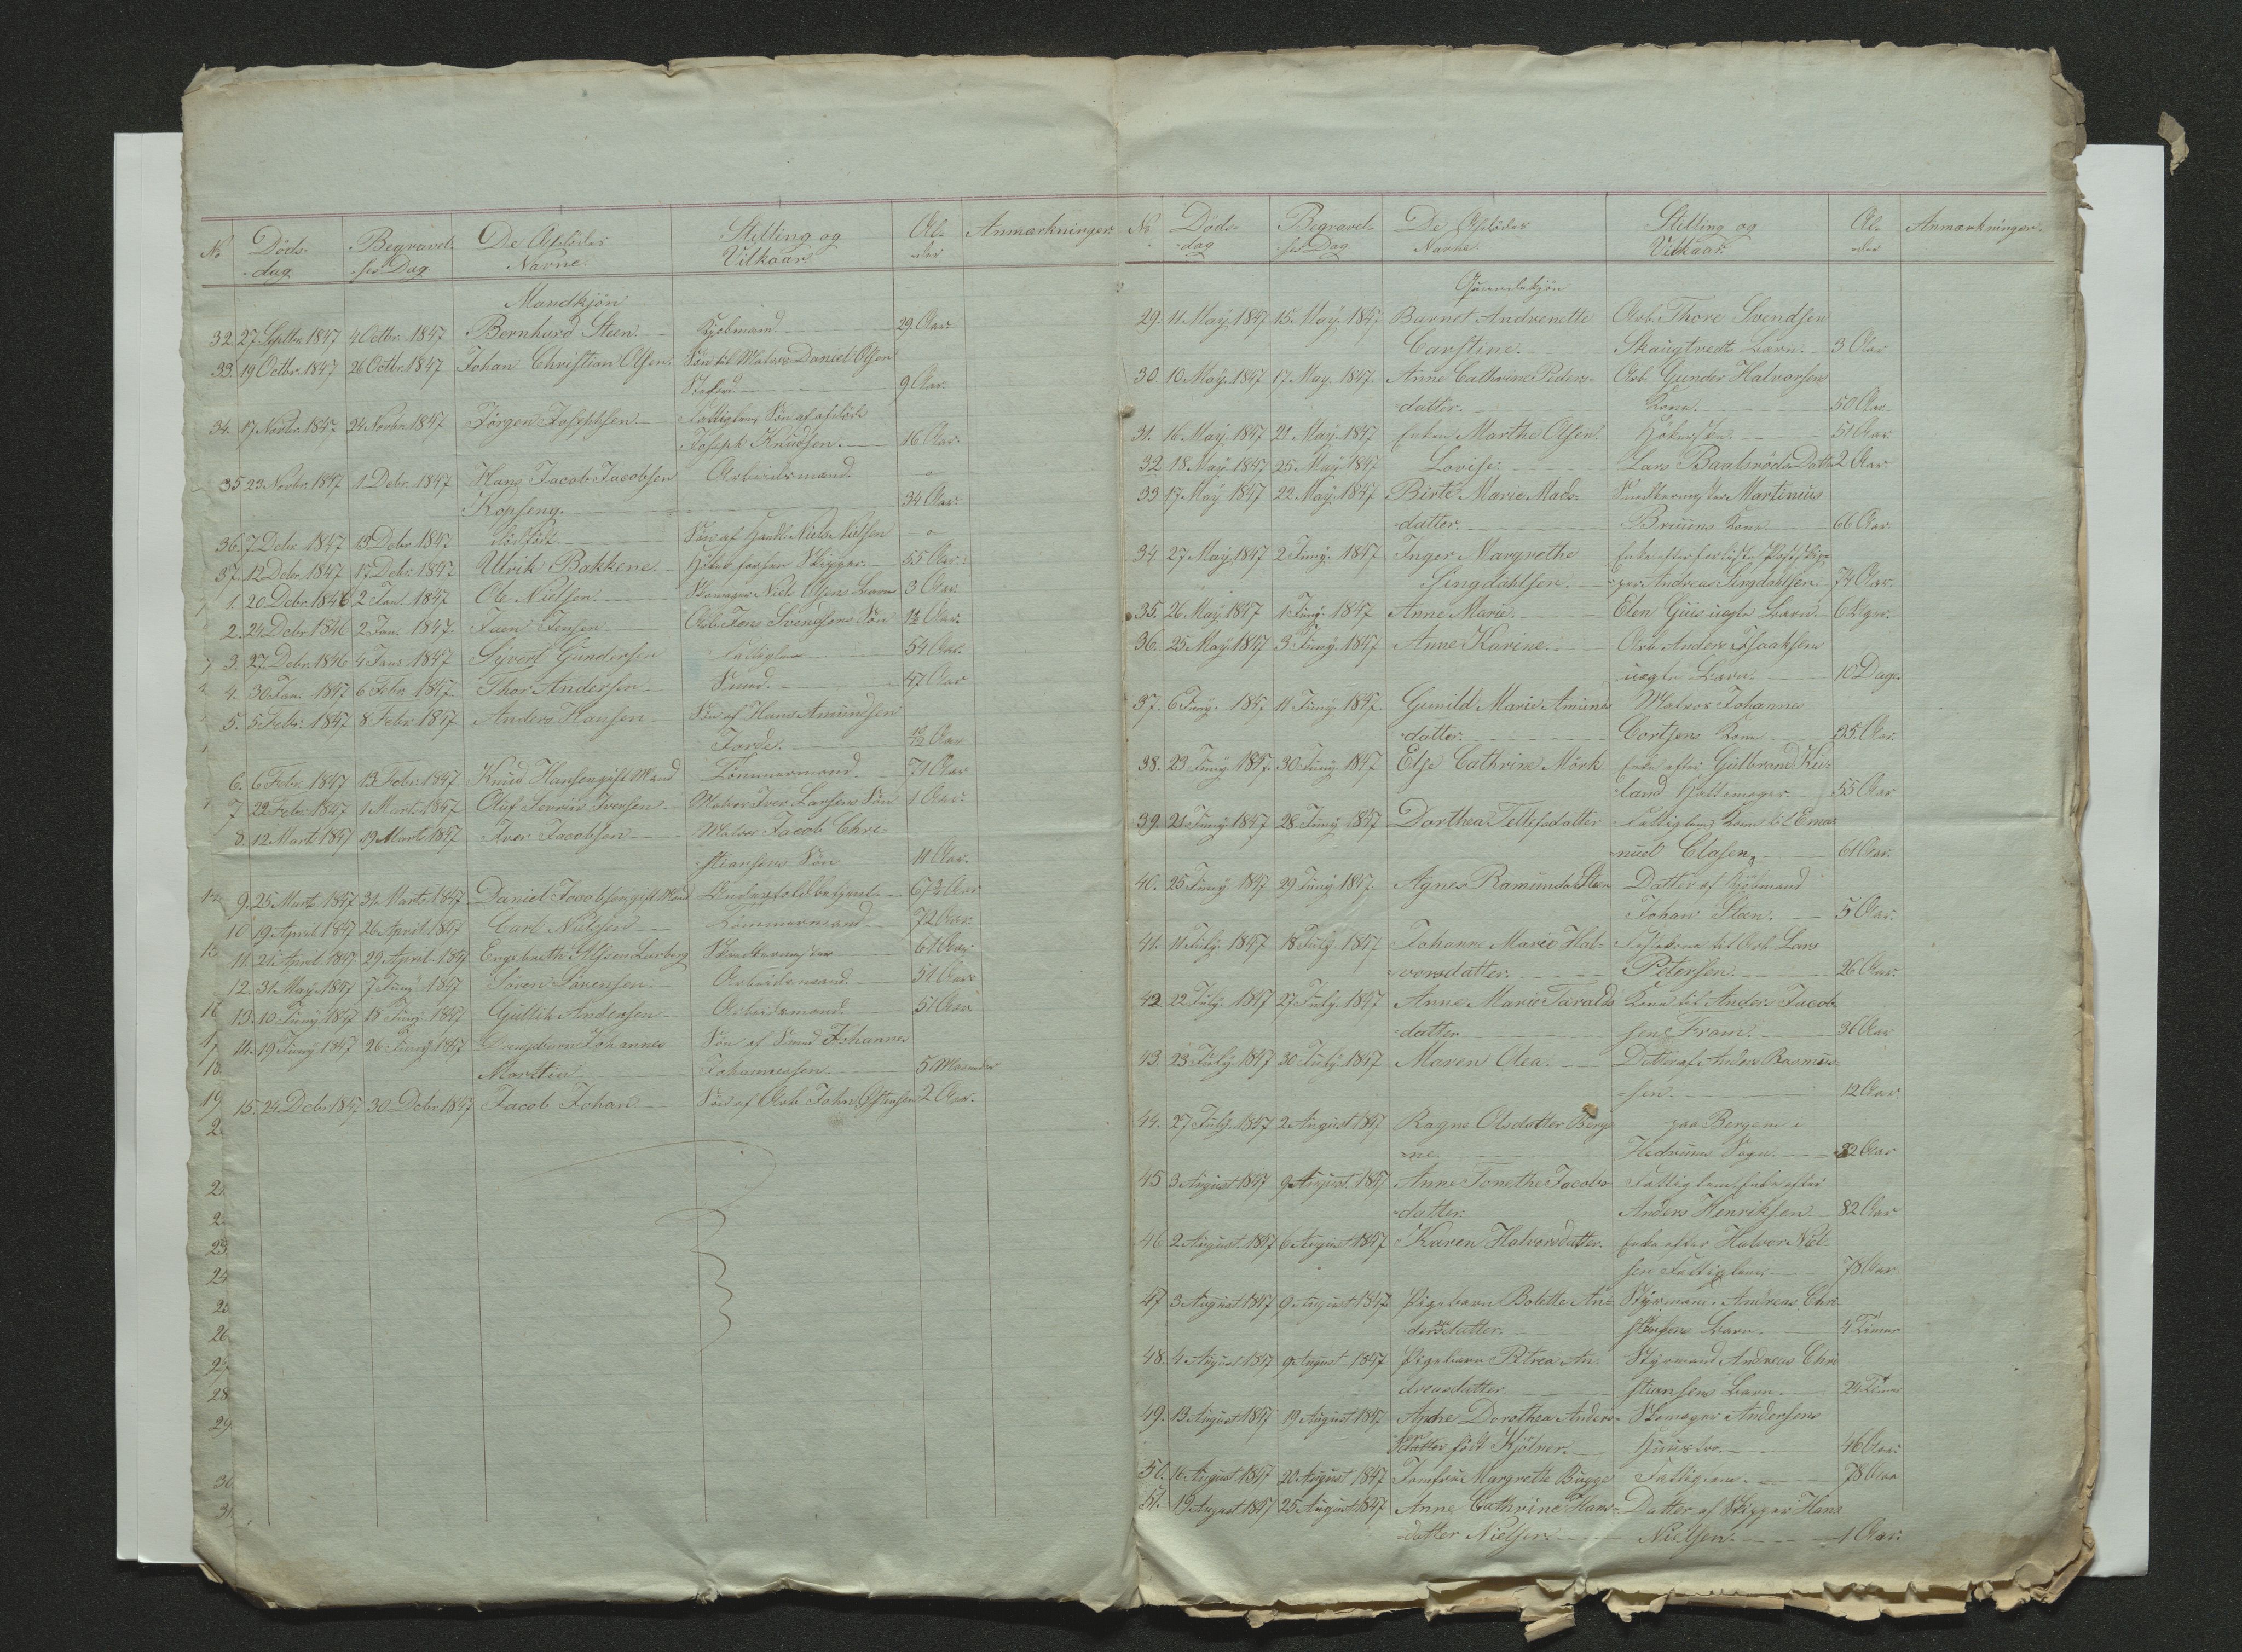 No Döds- Begravel- De Afdödes Stilling og Al- Anmærkninger
dag ses Dag Navne. Vilkaar der
Mandkjön
32. 27 Septbr. 1847 4 Octbr. 1847 Bernhard Steen Kjöbmand 29 Aar
33. 19 Octbr. 1847 26 Octbr. 1847 Johan Christian Olsen Sön til Matros Daniel Olsen
9 Aar.
34. 17 Novbr. 1847 24 Novbr. 1847 Jörgen Josephsen Fattiglem, Sön af afdöde
Joseph Knudsen. 16 Aar.
35 23 Novbr. 1847 1 Debr. 1847 Hans Jacob Jacobsen Arbeidsmand
Kopseng. 34 Aar.
36. 7 Debr. 1847 13 Debr. 1847 Dödfödt Sön af Niels Nielsen o
37. 12 Debr. 1847 17 Debr. 1847 Ulrik Bakkene Skipper 55 Aar.
1. 20 Debr. 1846 2 Jan. 1847 Ole Nielsen Niels Olsens Barn 3 Aar
2. 24 Debr. 1846 2 Jan. 1847. Jensen Arb. Jens Svendsens Sön Aar.
3. 27 Debr. 1846 4 Jan. 1847 Syvert Gundersen Fattiglem 54 Aar.
4. 30 Jan. 1847 6 Febr. 1847 Thor Andersen Smed. 47 Aar
5. 5 Febr. 1847 8 Febr. 1847 Anders Hansen Sön af Hans Amundsen
Aar
6. 6 Febr. 1847 13 Febr. 1847 Knud Hansen gift Mand Tömmermand. 71 Aar
7 22 Febr. 1847 1 Marts 1847 Oluf Severin Iversen Matros Iver Larsens Sön 1 Aar.
8. 12 Marts 1847 19 Marts 1847 Iver Jacobsen Matros Jacob Chri-
stiansens Sön 11 Aar.
9. 25 Marts 1847 31 Marts 1847 Daniel Jacobsen gift Mand Aar
10 19 April 1847 26 April 1847 Carl Nielsen Tömmermand 72 Aar.
11. 21 April 1847. 29 April 1847 Engebreth Larberg Skrædermester 61 Aar
12. 31 May 1847 7 Juny 1847 Sören Sörensen Arbeidsmand 51 Aar
13. 10 Juny 1847 18 Juny 1847 Gullik Andersen Arbeidsmand. 51 Aar
14. 19 Juny 1847 26 Juny 1847 Drengebarn Johannes Sön af Smed Johannes
Martin Johannessen. 5 Maaneder
15. 24 Debr. 1847 30 Debr. 1847 Jacob Johan Sön af Arb. John 2 Aar.
No Döds- Begravel- De Afdödes Stilling og Al- Anmærkninger.
dag ses Dag Navne. Vilkaar. der
Qvindekjön
29. 11 May. 1847 15 May. 1847 Barnet Andrenette Arb. Thore Svendsen
Carstine. Skaugtvedts Barn. 3 Aar
30. 10 May. 1847 17 May. 1847. Anne Cathrine Peders- Arb. Gunder Halvorsens
datter. Kone. 50 Aar
31. 16 May. 1847 21 May. 1847 Enken Marthe Olsen. 51 Aar.
32 18 May 1847 25 May 1847 Lovise Lars Datter 2 Aar.
33 17 May 1847 22 May. 1847 Birte Marie Mads- Martinius
datter. Bruuns Kone 66 Aar.
34. 27 May 1847 2 Juny. 1847 Inger Margrethe Enke efter
Singdahlsen. Andreas Singdahlsen. 74 Aar.
35. 26 May 1847 1 Juny. 1847 Anne Marie. Elen uægte Barn. 6
36. 25 May. 1847 3 Juny. 1847 Anne Karine. Arb. Anders Isaaksens
uægte Barn. 10 Dage
37. 6 Juny. 1847 11 Juny 1847. Gunild Marie Amunds Matros Johannes
datter. Cortsens Kone 35. Aar.
38. 23 Juny. 1847. 30 Juny. 1847 Else Cathrine Mörk Enke efter Gulbrand
land 55 Aar
39. 21 Juny 1847 28. Juny 1847 Dorthea Tellefsdatter Fattiglem Kone til Ema-
nuel Clasen. 61 Aar.
40. 25 Juny 1847 29 Juny 1847. Agnes Ramundal Steen Datter af Kjöbmand
Johan Steen. 5 Aar.
41. 11 July. 1847 18 July. 1847 Johanne Marie Hal- til Arb. Lars
vorsdatter. Petersen. 26 Aar.
42 22 July. 1847 27 July. 1847. Anne Marie Taralds Kone til Anders Jacob
datter sen Fram. 36 Aar
43 23 July 1847 30 July. 1847 Maren Olea. Datter af Anders Rasmus-
sen. 12 Aar.
44. 27 July. 1847 2 August 1847 Ragne Olsdatter Berge paa Bergene i
ne Hedrums Sogn. 82 Aar
45 3 August 1847 9 August. 1847 Anne Tonethe Jacobs Fattiglem, Enke efter
datter. Anders Henriksen. 82 Aar
46 2 August. 1847 6 August 1847 Karen Halvorsdatter. Enke efter Halvor Niel-
sen Fattiglem 78 Aar
47 3 August 1847 9 August 1847 Pigebarn Bolette An- Styrmand Andreas Chri-
datter. Barn. 4 Timer
48. 4 August 1847 9 August 1847 Pigebarn Petrea An- Styrmand Andreas Chri
dreasdatter. stiansens Barn. 24 Timer
49. 13 August 1847 19 August 1847 Dorothea Anders- Skomager Andersens
datter födt Kjölner. Huustro. 46 Aar.
50. 16 August 1847 20 August 1847 Jomfru Margrethe Bugge Fattiglem. 78 Aar
51. 19 August 1847 25 August 1847 Anne Cathrine Hans- Datter af Skipper Hans
datter Nielsen. Nielsen. 1 Aar.